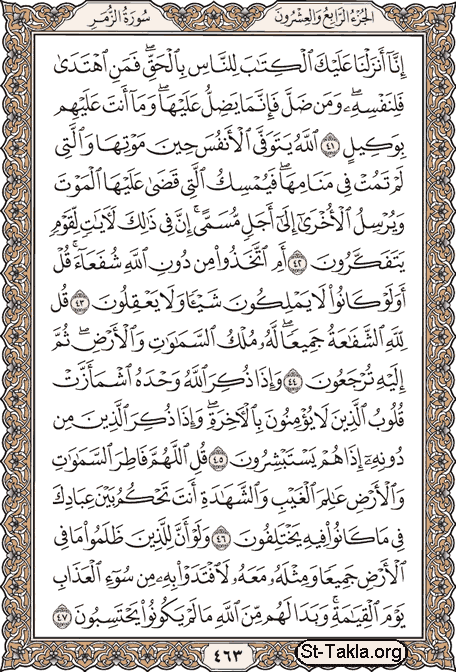 سُورَةُ الزُّمَر
الجُزْءُ الرَّابِعُ وَالعِشْرُونَ
إِنَّآ أَنزَلْنَا عَلَيْكَ ٱلْكِتَٰبَ لِلنَّاسِ بِٱلْحَقِّ ۖ فَمَنِ ٱهْتَدَىٰ
فَلِنَفْسِهِۦ ۖ وَمَن ضَلَّ فَإِنَّمَا يَضِلُّ عَلَيْهَا ۖ وَمَآ أَنتَ عَلَيْهِم
بِوَكِيلٍ ٤١ ٱللَّهُ يَتَوَفَّى ٱلْأَنفُسَ حِينَ مَوْتِهَا وَٱلَّتِى
لَمْ تَمُتْ فِى مَنَامِهَا ۖ فَيُمْسِكُ ٱلَّتِى قَضَىٰ عَلَيْهَا ٱلْمَوْتَ
وَيُرْسِلُ ٱلْأُخْرَىٰٓ إِلَىٰٓ أَجَلٍ مُّسَمًّى ۚ إِنَّ فِى ذَٰلِكَ لَءَايَٰتٍ لِّقَوْمٍ
يَتَفَكَّرُونَ ٤٢ أَمِ ٱتَّخَذُوا۟ مِن دُونِ ٱللَّهِ شُفَعَآءَ ۚ قُلْ
أَوَلَوْ كَانُوا۟ لَا يَمْلِكُونَ شَيْـًٔا وَلَا يَعْقِلُونَ ٤٣ قُل
لِّلَّهِ ٱلشَّفَٰعَةُ جَمِيعًا ۖ لَّهُۥ مُلْكُ ٱلسَّمَٰوَٰتِ وَٱلْأَرْضِ ۖ ثُمَّ
إِلَيْهِ تُرْجَعُونَ ٤٤ وَإِذَا ذُكِرَ ٱللَّهُ وَحْدَهُ ٱشْمَأَزَّتْ
قُلُوبُ ٱلَّذِينَ لَا يُؤْمِنُونَ بِٱلْءَاخِرَةِ ۖ وَإِذَا ذُكِرَ ٱلَّذِينَ مِن
دُونِهِۦٓ إِذَا هُمْ يَسْتَبْشِرُونَ ٤٥ قُلِ ٱللَّهُمَّ فَاطِرَ ٱلسَّمَٰوَٰتِ
وَٱلْأَرْضِ عَٰلِمَ ٱلْغَيْبِ وَٱلشَّهَٰدَةِ أَنتَ تَحْكُمُ بَيْنَ عِبَادِكَ
فِى مَا كَانُوا۟ فِيهِ يَخْتَلِفُونَ ٤٦ وَلَوْ أَنَّ لِلَّذِينَ ظَلَمُوا۟ مَا فِى
ٱلْأَرْضِ جَمِيعًا وَمِثْلَهُۥ مَعَهُۥ لَٱفْتَدَوْا۟ بِهِۦ مِن سُوٓءِ ٱلْعَذَابِ
يَوْمَ ٱلْقِيَٰمَةِ ۚ وَبَدَا لَهُم مِّنَ ٱللَّهِ مَا لَمْ يَكُونُوا۟ يَحْتَسِبُونَ ٤٧
٤٦٣
St-Takla.org